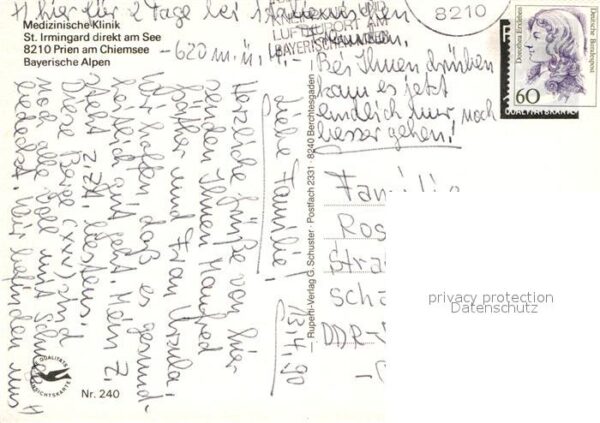 Medizinische Klinik
St. Irmingard direkt am See
8210 Prien am Chiemsee
Bayerische Alpen
8210
LUFTKURORT AM
BAYERISCHEN
Deutsche Bundespost
Dorothea Erxleben
60
13.4.90
Liebe Familie!
Herzliche Grüße von hier
senden Ihnen Manfred
und Frau Ursula!
Wir hoffen, daß es gesund-
heitlich gut geht. Mein Z.
steht z.Zt. bestens!
Diese Berge (XXV) sind
noch alle voll mit Schnee
bedeckt. Wir befinden uns
hier für 2 Tage bei
- 620 m.ü.M. -
Bei Ihnen drüben
kann es jetzt
endlich nur noch
besser gehen!
Familie
Ros
Stra
Scha
DDR-
Ruperti-Verlag G. Schuster · Postfach 2331 · 8240 Berchtesgaden
QUALITÄTS
ANSICHTSKARTE
Nr. 240
privacy protection
Datenschutz